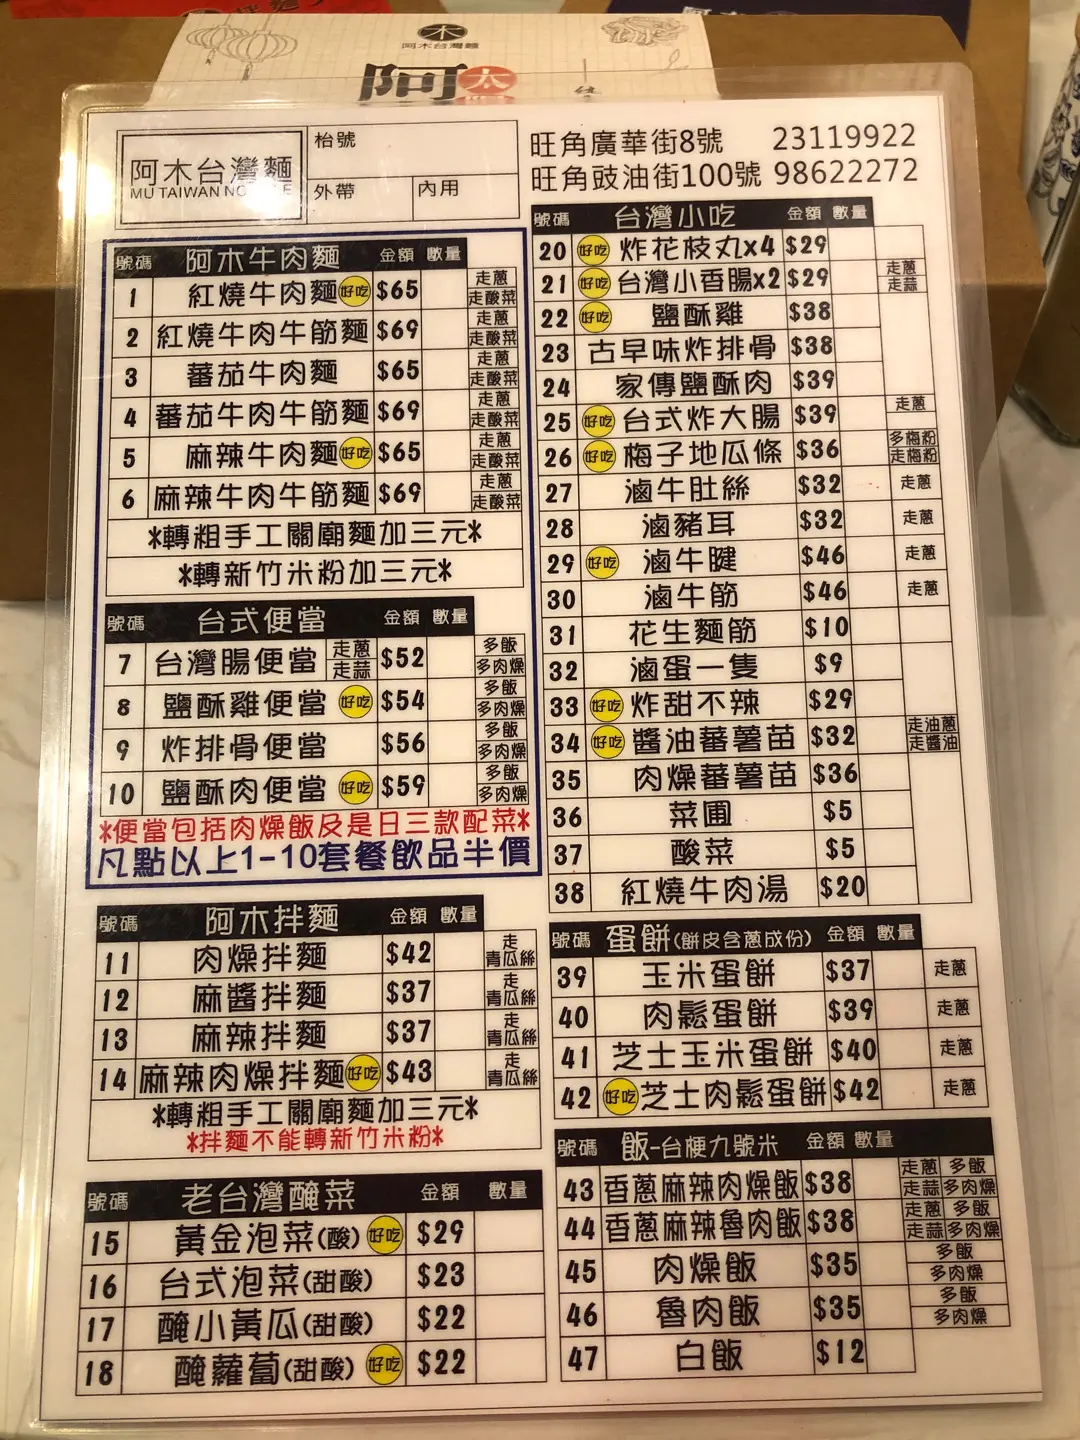 木
阿木台灣麵
阿木
阿木台灣麵
MU TAIWAN
枱號
外帶 內用
旺角廣華街8號 23119922
旺角豉油街100號 98622272
號碼 阿木牛肉麵 金額 數量
1 紅燒牛肉麵 好吃 $65 走蔥 走酸菜
2 紅燒牛肉牛筋麵 $69 走蔥 走酸菜
3 蕃茄牛肉麵 $65 走蔥 走酸菜
4 蕃茄牛肉牛筋麵 $69 走蔥 走酸菜
5 麻辣牛肉麵 好吃 $65 走蔥 走酸菜
6 麻辣牛肉牛筋麵 $69 走蔥 走酸菜
*轉粗手工關廟麵加三元*
*轉新竹米粉加三元*
號碼 台式便當 金額 數量
7 台灣腸便當 走蔥 走蒜 $52 多飯 多肉燥
8 鹽酥雞便當 好吃 $54 多飯 多肉燥
9 炸排骨便當 $56 多飯 多肉燥
10 鹽酥肉便當 好吃 $59 多飯 多肉燥
*便當包括肉燥飯及是日三款配菜*
凡點以上1-10套餐飲品半價
號碼 阿木拌麵 金額 數量
11 肉燥拌麵 $42 走青瓜絲
12 麻醬拌麵 $37 走青瓜絲
13 麻辣拌麵 $37 走青瓜絲
14 麻辣肉燥拌麵 好吃 $43 走青瓜絲
*轉粗手工關廟麵加三元*
*拌麵不能轉新竹米粉*
號碼 老台灣醃菜 金額 數量
15 黃金泡菜(酸) 好吃 $29
16 台式泡菜(甜酸) $23
17 醃小黃瓜(甜酸) $22
18 醃蘿蔔(甜酸) 好吃 $22
號碼 台灣小吃 金額 數量
20 好吃 炸花枝丸x4 $29
21 好吃 台灣小香腸x2 $29 走蔥 走蒜
22 好吃 鹽酥雞 $38
23 古早味炸排骨 $38
24 家傳鹽酥肉 $39
25 好吃 台式炸大腸 $39 走蔥
26 好吃 梅子地瓜條 $36 多梅粉 走梅粉
27 滷牛肚絲 $32 走蔥
28 滷豬耳 $32 走蔥
29 好吃 滷牛腱 $46 走蔥
30 滷牛筋 $46 走蔥
31 花生麵筋 $10
32 滷蛋一隻 $9
33 好吃 炸甜不辣 $29
34 好吃 醬油蕃薯苗 $32 走油蔥 走醬油
35 肉燥蕃薯苗 $36
36 菜圃 $5
37 酸菜 $5
38 紅燒牛肉湯 $20
號碼 蛋餅(餅皮含蔥成份) 金額 數量
39 玉米蛋餅 $37 走蔥
40 肉鬆蛋餅 $39 走蔥
41 芝士玉米蛋餅 $40 走蔥
42 好吃 芝士肉鬆蛋餅 $42 走蔥
號碼 飯-台梗九號米 金額 數量
43 香蔥麻辣肉燥飯 $38 走蔥 多飯 走蒜 多肉燥
44 香蔥麻辣魯肉飯 $38 走蔥 多飯 走蒜 多肉燥
45 肉燥飯 $35 多飯 多肉燥
46 魯肉飯 $35 多飯 多肉燥
47 白飯 $12